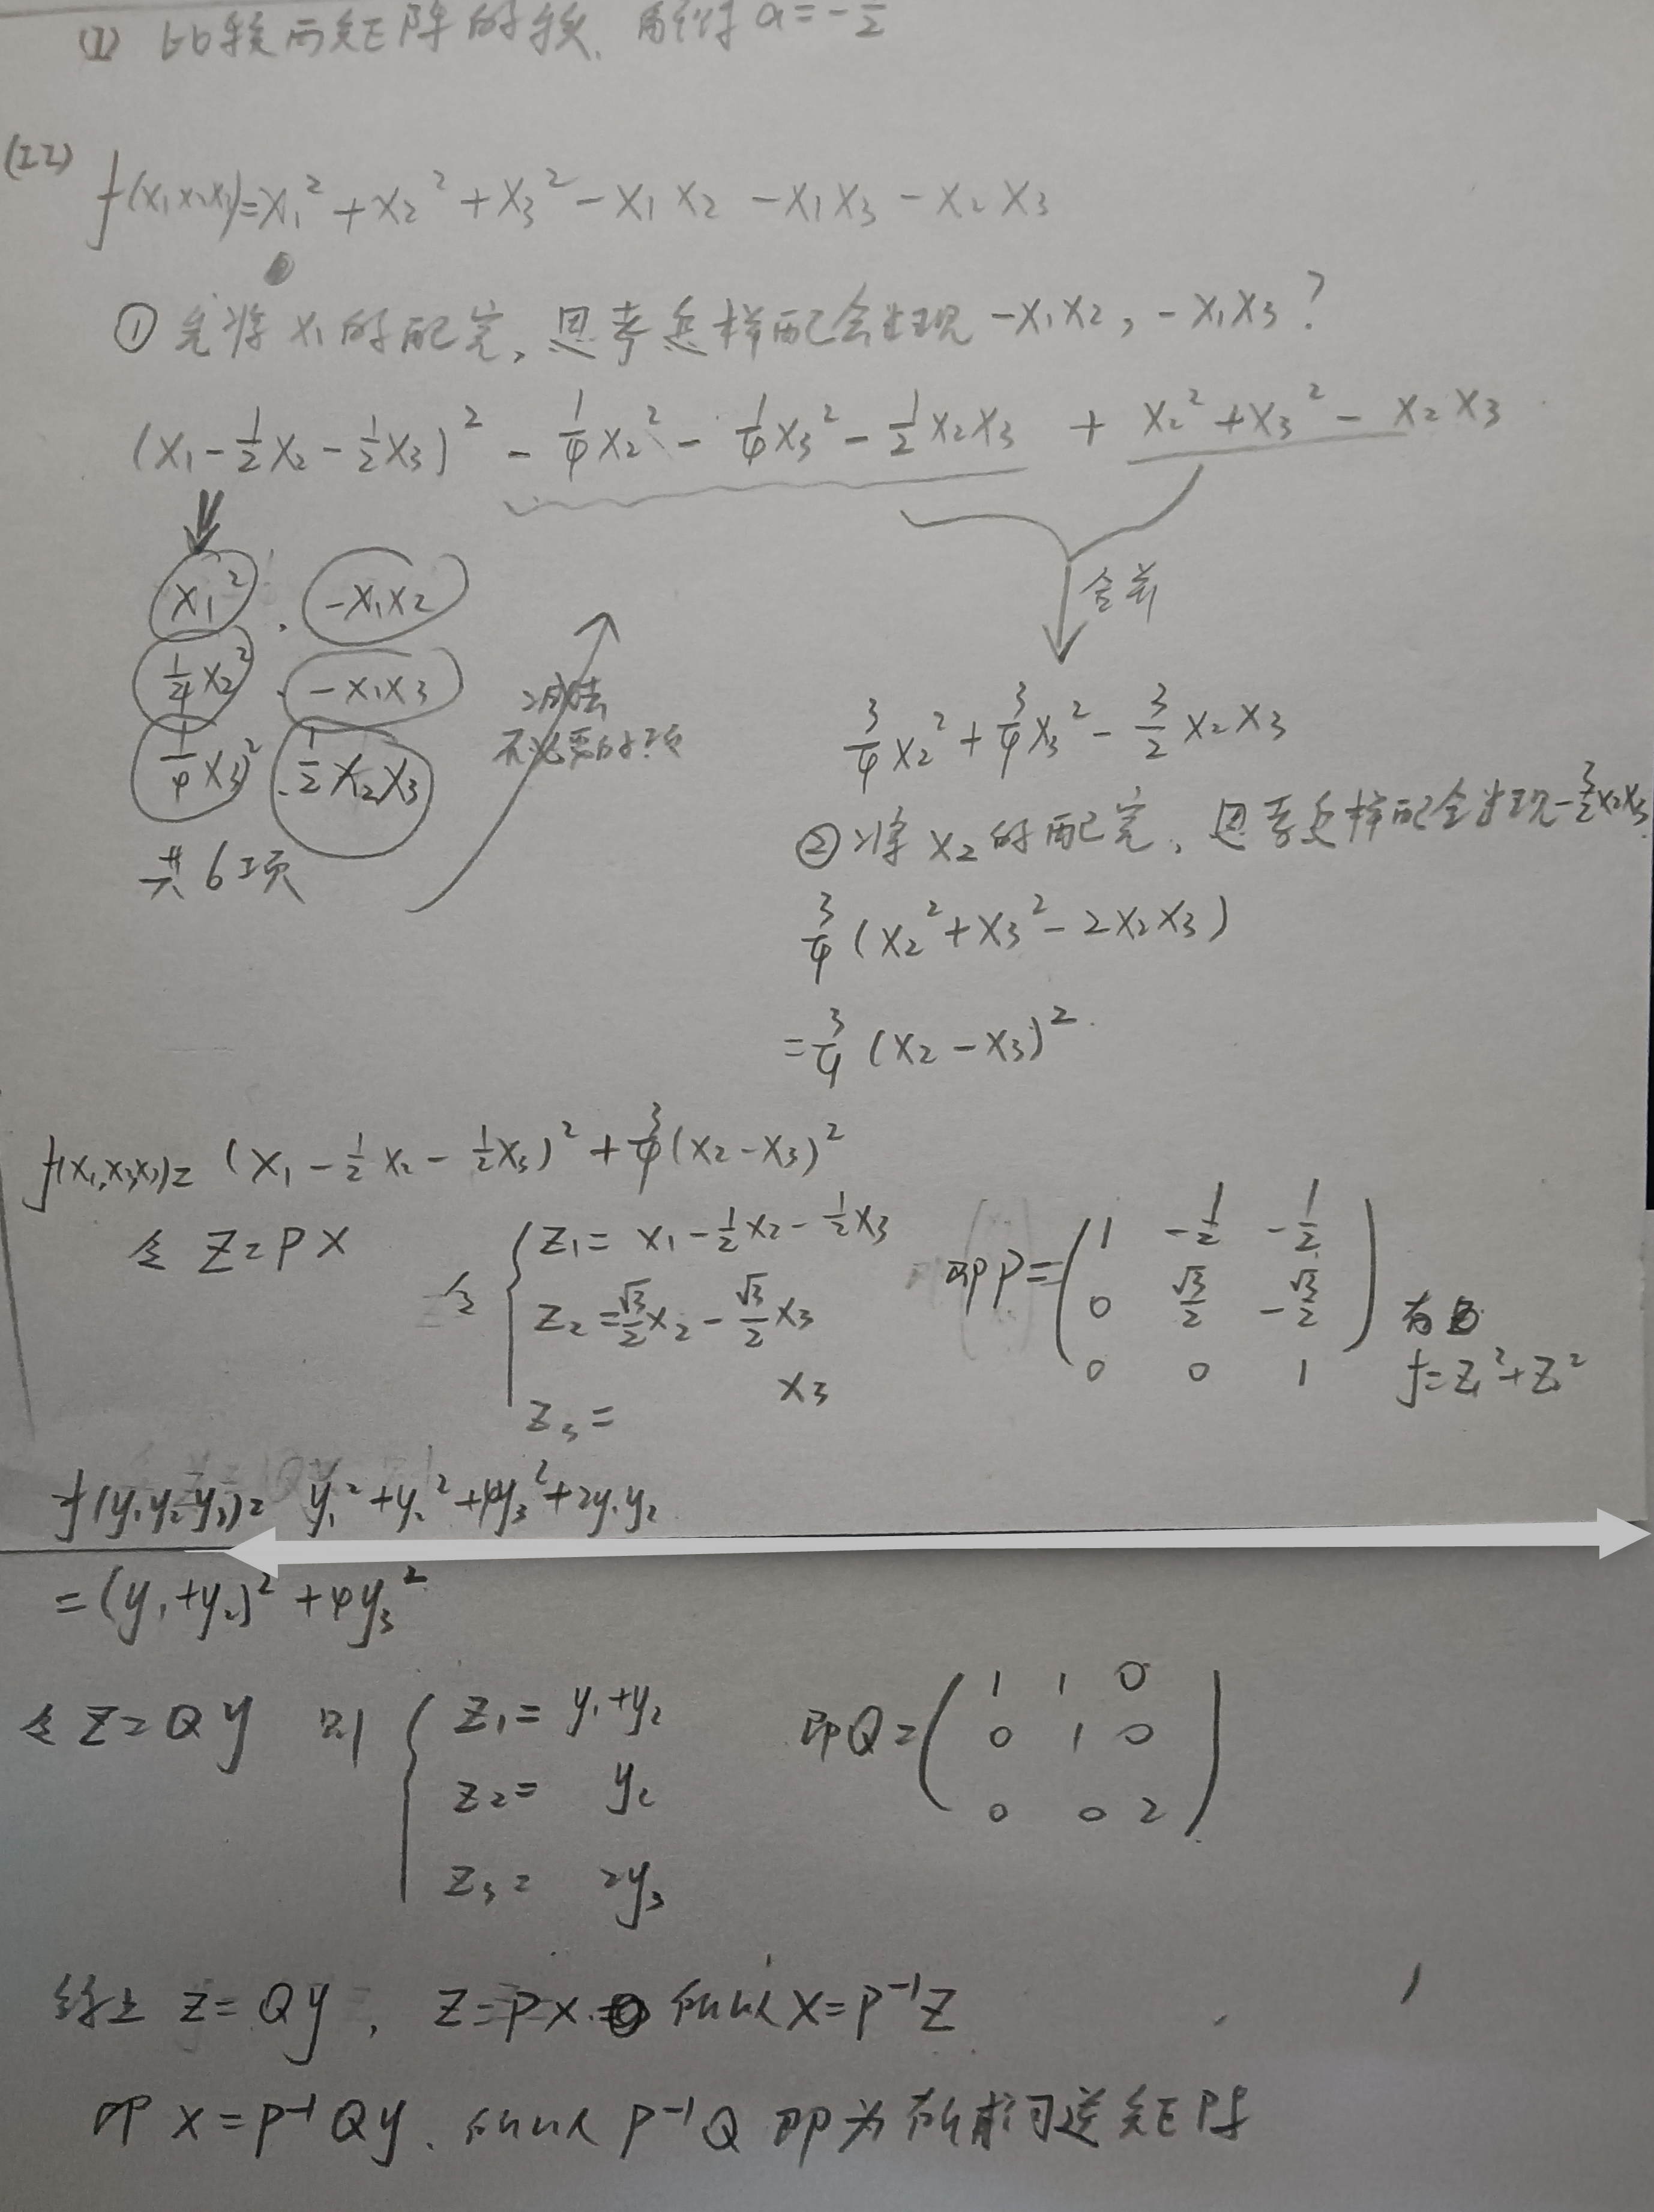 (1) 比较两矩阵的秩. 解得 a=-1/2
(II) f(x₁x₂x₃)=x₁²+x₂²+x₃²-x₁x₂-x₁x₃-x₂x₃
① 先将x₁的配完, 思考怎样配会出现-x₁x₂, -x₁x₃?
(x₁-1/2x₂-1/2x₃)²-1/4x₂²-1/4x₃²-1/2x₂x₃+x₂²+x₃²-x₂x₃
x₁², -x₁x₂
1/4x₂². -x₁x₃
1/4x₃². 1/2x₂x₃
共6项
减去
不必要的项
合并
3/4x₂²+3/4x₃²-3/2x₂x₃
② 将x₂的配完, 思考怎样配会出现-3/2x₂x₃.
3/4(x₂²+x₃²-2x₂x₃)
=3/4(x₂-x₃)²
f(x₁,x₂x₃)=(x₁-1/2x₂-1/2x₃)²+3/4(x₂-x₃)²
令 Z=PX
令 { Z₁=x₁-1/2x₂-1/2x₃
Z₂=√3/2x₂-√3/2x₃
Z₃= x₃
即P=(1 -1/2 -1/2
0 √3/2 -√3/2
0 0 1)
f=Z₁²+Z₂²
f(y₁y₂y₃)=y₁²+y₂²+4y₃²+2y₁y₂
=(y₁+y₂)²+4y₃²
令 Z=Qy 则 { Z₁=y₁+y₂
Z₂= y₂
Z₃= 2y₃
即Q=(1 1 0
0 1 0
0 0 2)
综上 Z=Qy, Z=PX 所以X=P⁻¹Z
即 X=P⁻¹Qy. 所以P⁻¹Q即为所求可逆矩阵